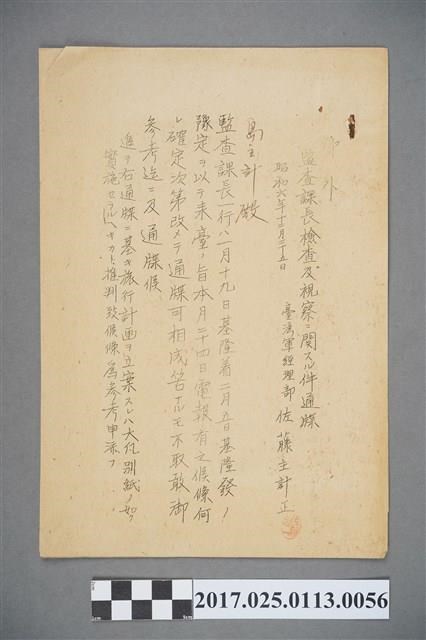 号外
監査課長検査及視察ニ関スル件通牒
昭和六年十二月二十五日
臺湾軍経理部 佐藤主計正
島主計殿
監査課長一行ハ一月十九日基隆着二月五日基隆發ノ
豫定ヲ以テ来臺ノ旨本月二十四日電報有之候條何
レ確定次第改メテ通牒可相成筈ナルモ不取敢御
参考迄ニ及通牒候
進テ右通牒ニ基キ旅行計画ヲ立案スレハ大凡別紙ノ如ク
實施セラルヘキカト推判致候條為参考申添フ
2017.025.0113.0056